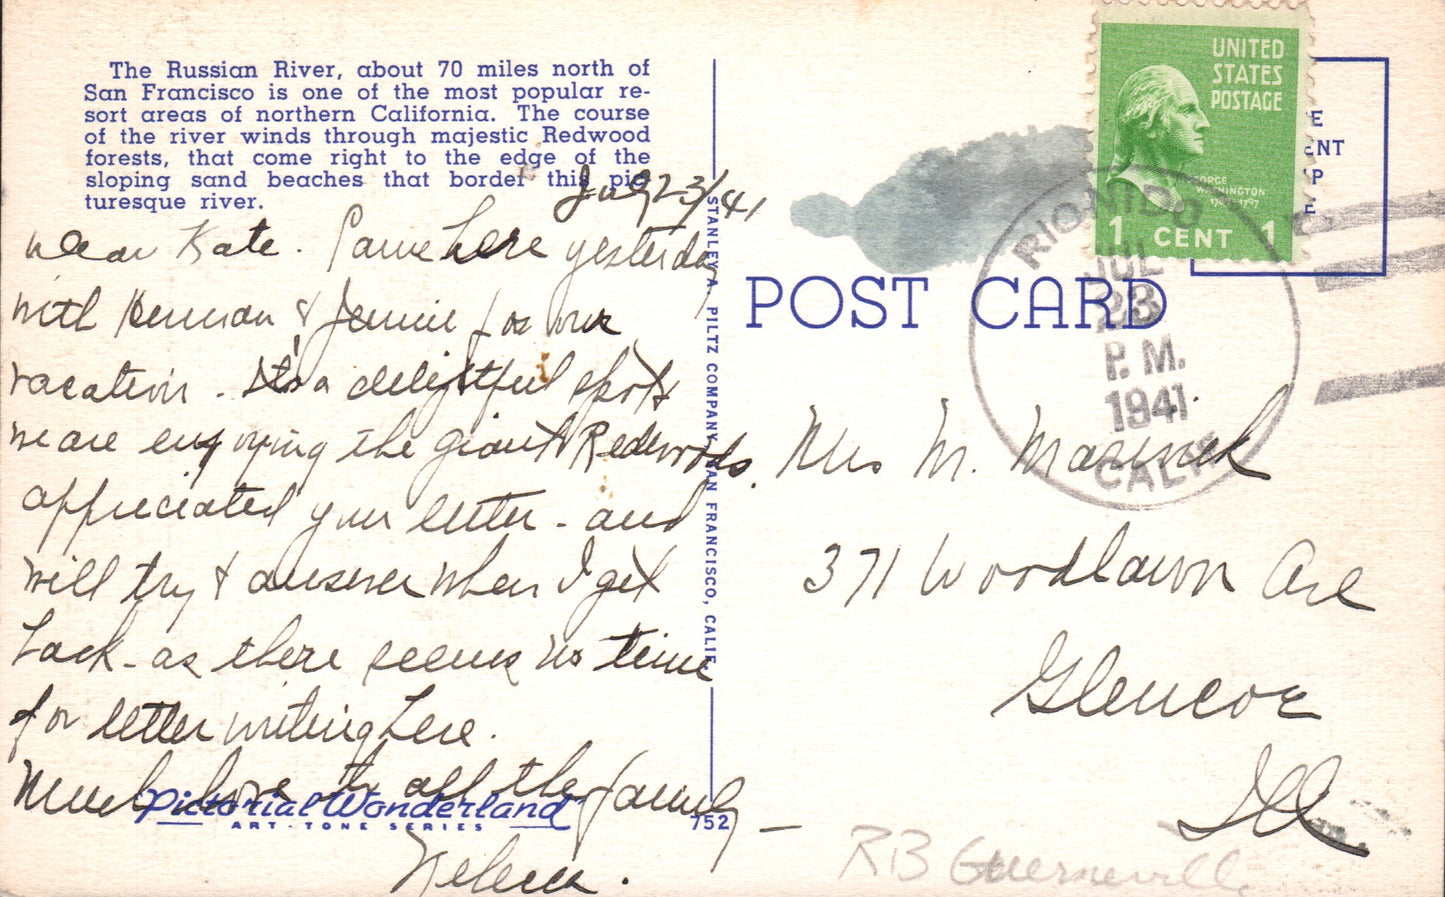 The Russian River, about 70 miles north of
San Francisco is one of the most popular re-
sort areas of northern California. The course
of the river winds through majestic Redwood
forests, that come right to the edge of the
sloping sand beaches that border this pic-
turesque river.
July 23/41
Dear Kate. Came here yesterday
with Herman & Jennie for our
vacation. It's a delightful spot &
we are enjoying the giant Redwoods.
appreciated your letter - and
will try & answer when I get
back - as there seems no time
for letter writing here.
Much love to all the family -
Helen.
Pictorial Wonderland
ART-TONE SERIES
752
STANLEY A. PILTZ COMPANY, SAN FRANCISCO, CALIF.
POST CARD
UNITED
STATES
POSTAGE
GEORGE
WASHINGTON
1 CENT 1
E
ENT
P
E
RIO NIDO
JUL
23
P.M.
1941
CALIF
Mrs M.
371 Woodlawn Ave
Glencoe
Ill.
RB Guerneville